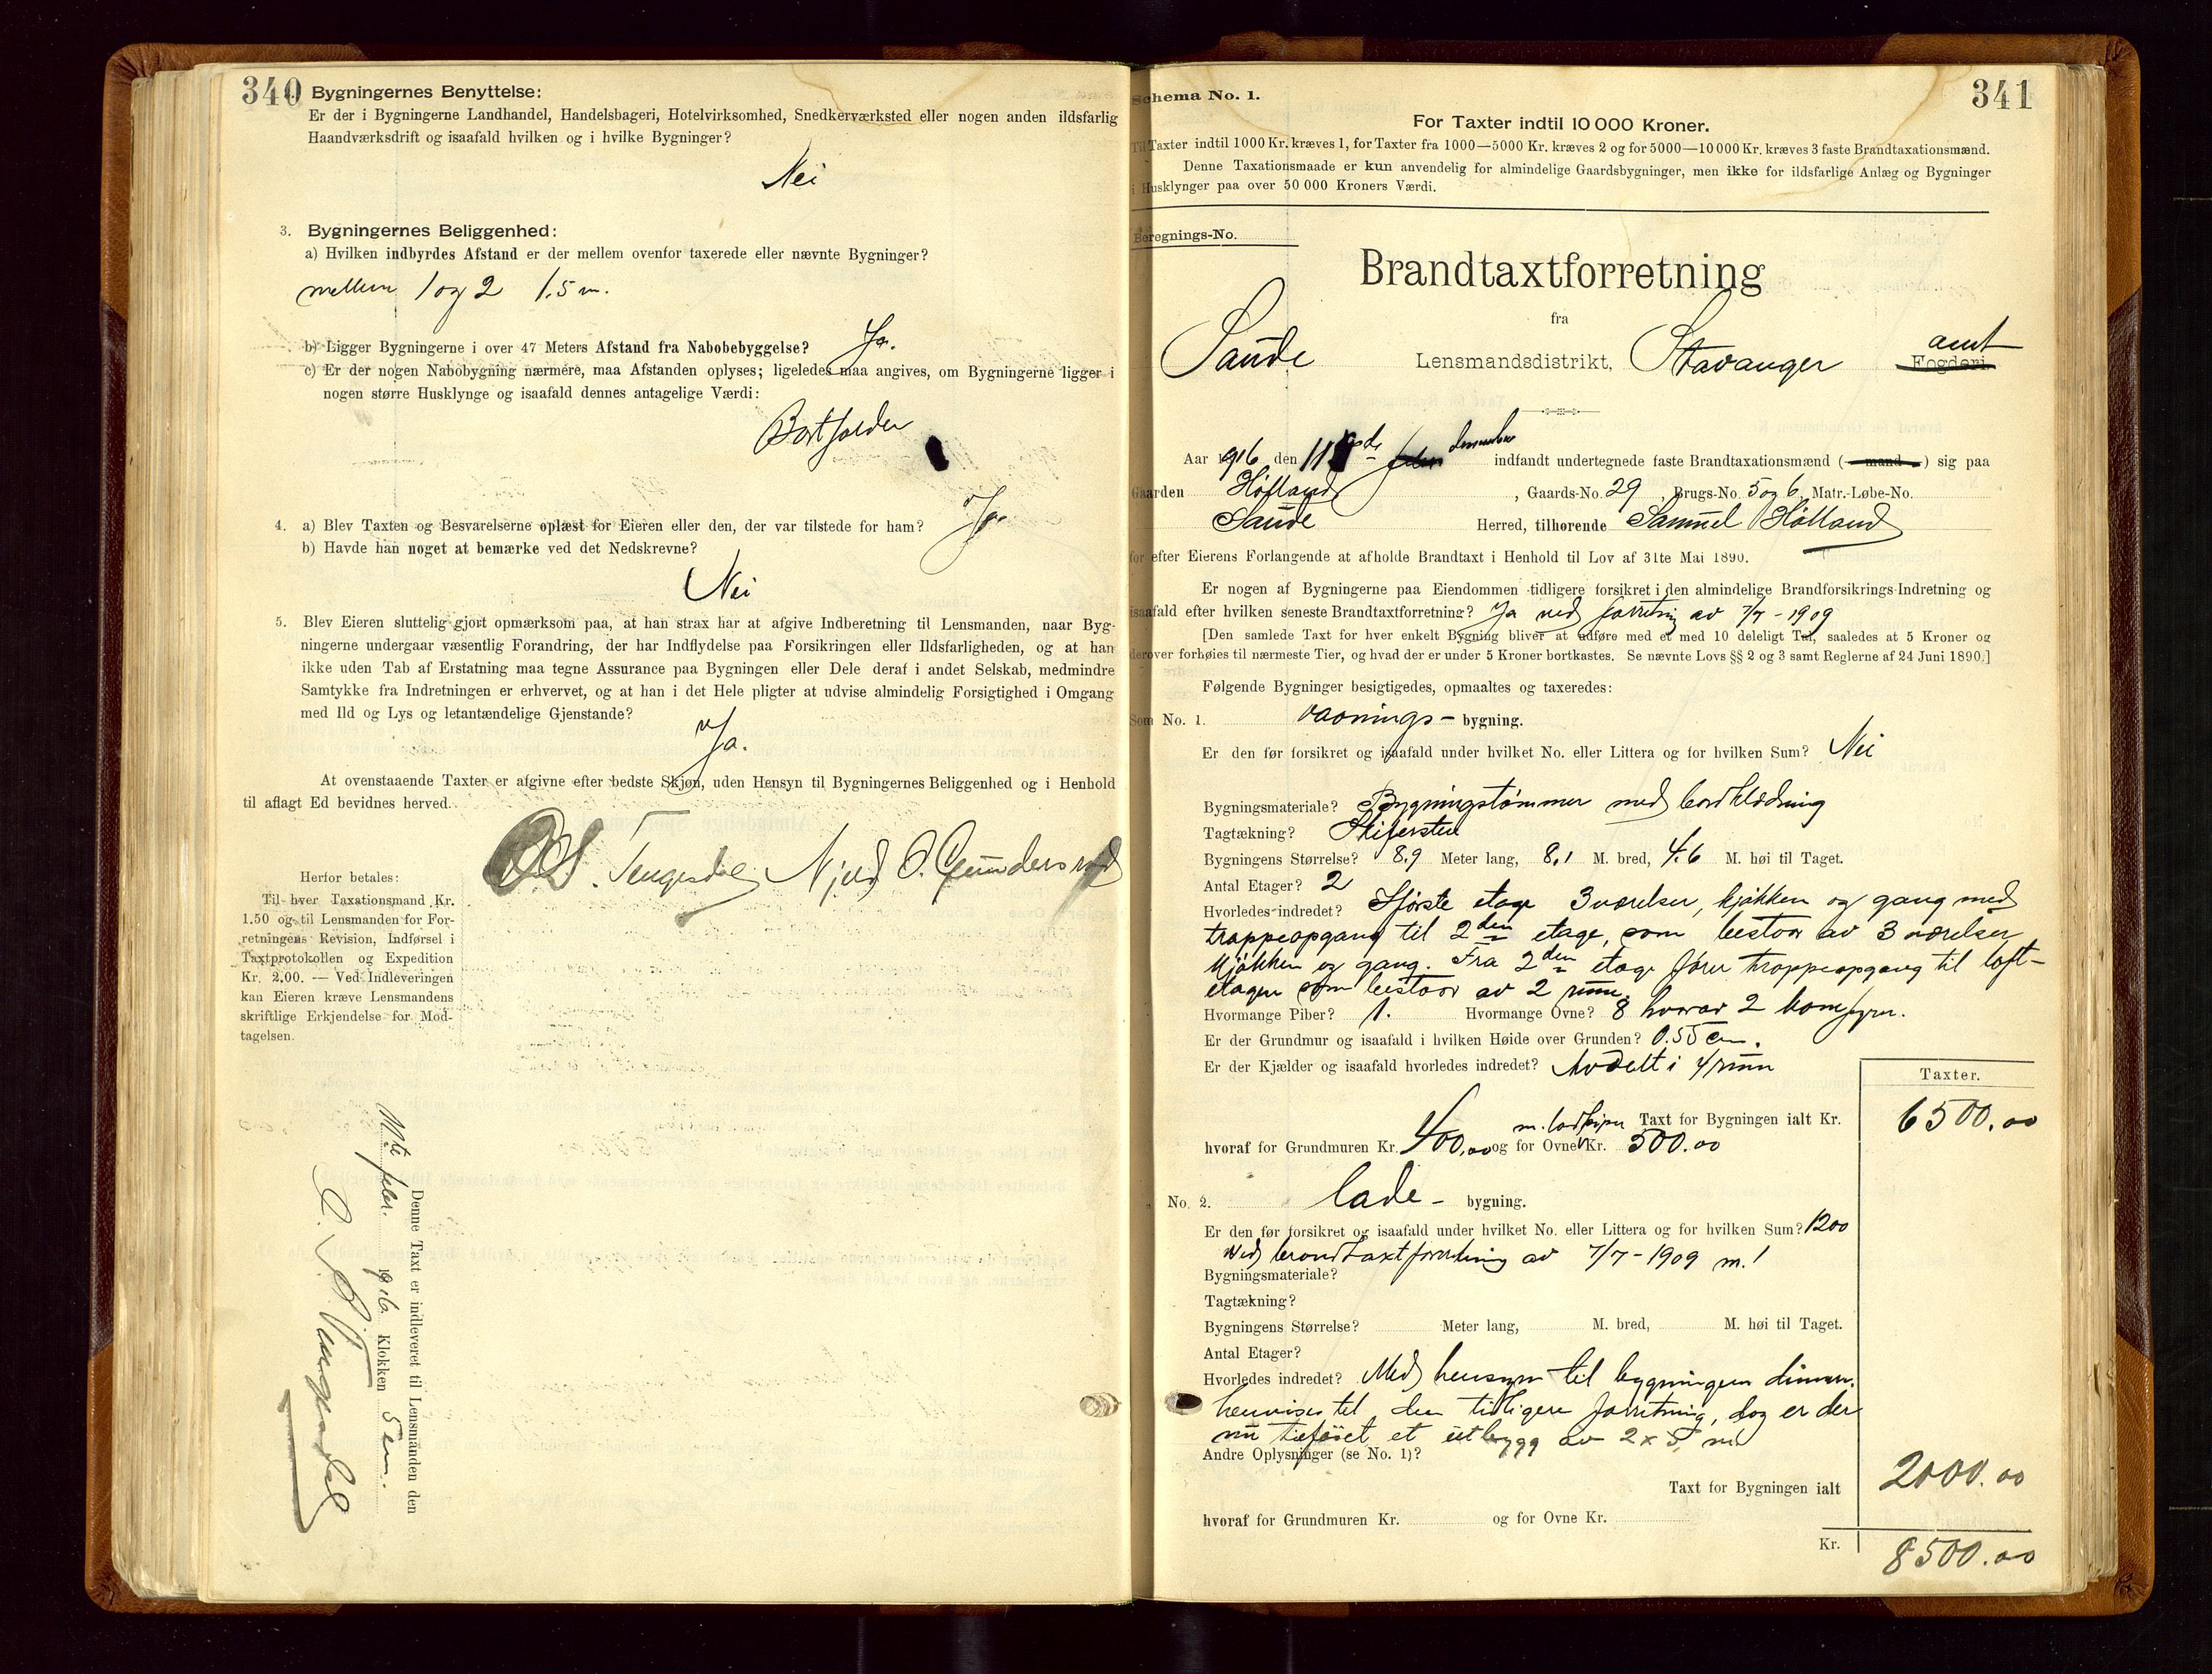 340
Bygningernes Benyttelse:
Er der i Bygningerne Landhandel, Handelsbageri, Hotelvirksomhed, Snedkerværksted eller nogen anden ildsfarlig
Haandværksdrift og isaafald hvilken og i hvilke Bygninger?
Nei
3. Bygningernes Beliggenhed:
a) Hvilken indbyrdes Afstand er der mellem ovenfor taxerede eller nævnte Bygninger?
mellem 1 og 2 1.5 m.
b) Ligger Bygningerne i over 47 Meters Afstand fra Nabobebyggelse? Ja.
c) Er der nogen Nabobygning nærmere, maa Afstanden oplyses; ligeledes maa angives, om Bygningerne ligger i
nogen større Husklynge og isaafald dennes antagelige Værdi:
Bortfalder
4. a) Blev Taxten og Besvarelserne oplæst for Eieren eller den, der var tilstede for ham? Ja.
b) Havde han noget at bemærke ved det Nedskrevne?
Nei
5. Blev Eieren sluttelig gjort opmærksom paa, at han strax har at afgive Indberetning til Lensmanden, naar Byg-
ningerne undergaar væsentlig Forandring, der har Indflydelse paa Forsikringen eller Ildsfarligheden, og at han
ikke uden Tab af Erstatning maa tegne Assurance paa Bygningen eller Dele deraf i andet Selskab, medmindre
Samtykke fra Indretningen er erhvervet, og at han i det Hele pligter at udvise almindelig Forsigtighed i Omgang
med Ild og Lys og letantændelige Gjenstande?
Ja.
At ovenstaaende Taxter er afgivne efter bedste Skjøn, uden Hensyn til Bygningernes Beliggenhed og i Henhold
til aflagt Ed bevidnes herved.
Tengesdal Njeld O. Gundersen
Herfor betales:
Til hver Taxationsmand Kr.
1.50 og til Lensmanden for For-
retningens Revision, Indførsel i
Taxtprotokollen og Expedition
Kr. 2.00. — Ved Indleveringen
kan Eieren kræve Lensmandens
skriftlige Erkjendelse for Mod-
tagelsen.
Denne Taxt er indleveret til Lensmanden den
febr. 1916. Klokken 5 em.
341
Schema No. 1.
For Taxter indtil 10 000 Kroner.
Til Taxter indtil 1000 Kr. kræves 1, for Taxter fra 1000—5000 Kr. kræves 2 og for 5000—10 000 Kr. kræves 3 faste Brandtaxationsmænd.
Denne Taxationsmaade er kun anvendelig for almindelige Gaardsbygninger, men ikke for ildsfarlige Anlæg og Bygninger
i Husklynger paa over 50 000 Kroners Værdi.
Beregnings-No.
Brandtaxtforretning
fra
Saude Lensmandsdistrikt, Stavanger amt Fogderi.
Aar 1916 den 11 de december indfandt undertegnede faste Brandtaxationsmænd (mand) sig paa
Gaarden Høfland, Gaards-No. 29, Brugs-No. 5 og 6, Matr.-Løbe-No.
Saude Herred, tilhørende Samuel Høfland
for efter Eierens Forlangende at afholde Brandtaxt i Henhold til Lov af 31te Mai 1890.
Er nogen af Bygningerne paa Eiendommen tidligere forsikret i den almindelige Brandforsikrings-Indretning og
isaafald efter hvilken seneste Brandtaxtforretning? Ja ved forretning av 7/7 - 1909
[Den samlede Taxt for hver enkelt Bygning bliver at udføre med et med 10 deleligt Tal, saaledes at 5 Kroner og
derover forhøies til nærmeste Tier, og hvad der er under 5 Kroner bortkastes. Se nævnte Lovs §§ 2 og 3 samt Reglerne af 24 Juni 1890.]
Følgende Bygninger besigtigedes, opmaaltes og taxeredes:
Som No. 1. vaanings- bygning.
Er den før forsikret og isaafald under hvilket No. eller Littera og for hvilken Sum? Nei
Bygningsmateriale? Bygningstømmer med bordklædning
Tagtækning? Skifersten
Bygningens Størrelse? 8.9 Meter lang, 8.1 M. bred, 4.6 M. høi til Taget.
Antal Etager? 2
Hvorledes indredet? I første etage 3 værelser, kjøkken og gang med
trappeopgang til 2den etage, som bestaar av 3 værelser
kjøkken og gang. Fra 2den etage fører trappeopgang til loft-
etagen som bestaar av 2 rum.
Hvormange Piber? 1. Hvormange Ovne? 8 hvorav 2 komfyrer.
Er der Grundmur og isaafald i hvilken Høide over Grunden? 0.55 cm.
Er der Kjælder og isaafald hvorledes indredet? Avdelt i 4 rum
Taxter.
Taxt for Bygningen ialt Kr. 6500.00
hvoraf for Grundmuren Kr. 400.00 og for Ovne Kr. 500.00
No. 2. lade- bygning.
Er den før forsikret og isaafald under hvilket No. eller Littera og for hvilken Sum? 1200
Ved brandtaxtforretning av 7/7 - 1909 m. 1
Bygningsmateriale?
Tagtækning?
Bygningens Størrelse? Meter lang, M. bred, M. høi til Taget.
Antal Etager?
Hvorledes indredet? Med hensyn til bygningen dimen.
henvises til den tidligere forretning, dog er der
nu tilføiet et utbygg av 2 x 5 m
Andre Oplysninger (se No. 1)?
Taxt for Bygningen ialt 2000.00
hvoraf for Grundmuren Kr. og for Ovne Kr.
Kr. 8500.00